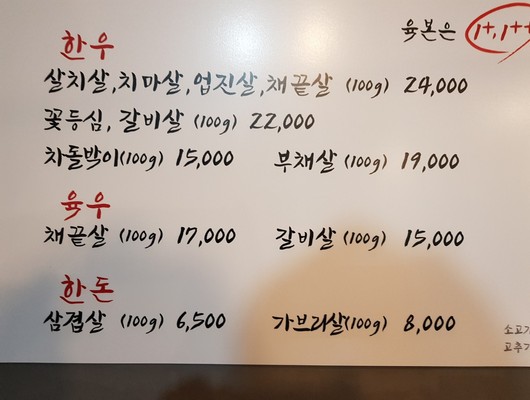 육본은 1+, 1++
한우
살치살, 치마살, 업진살, 채끝살 (100g) 24,000
꽃등심, 갈비살 (100g) 22,000
차돌박이(100g) 15,000 부채살 (100g) 19,000
육우
채끝살 (100g) 17,000 갈비살 (100g) 15,000
한돈
삼겹살 (100g) 6,500 가브리살(100g) 8,000
소고기
고추가